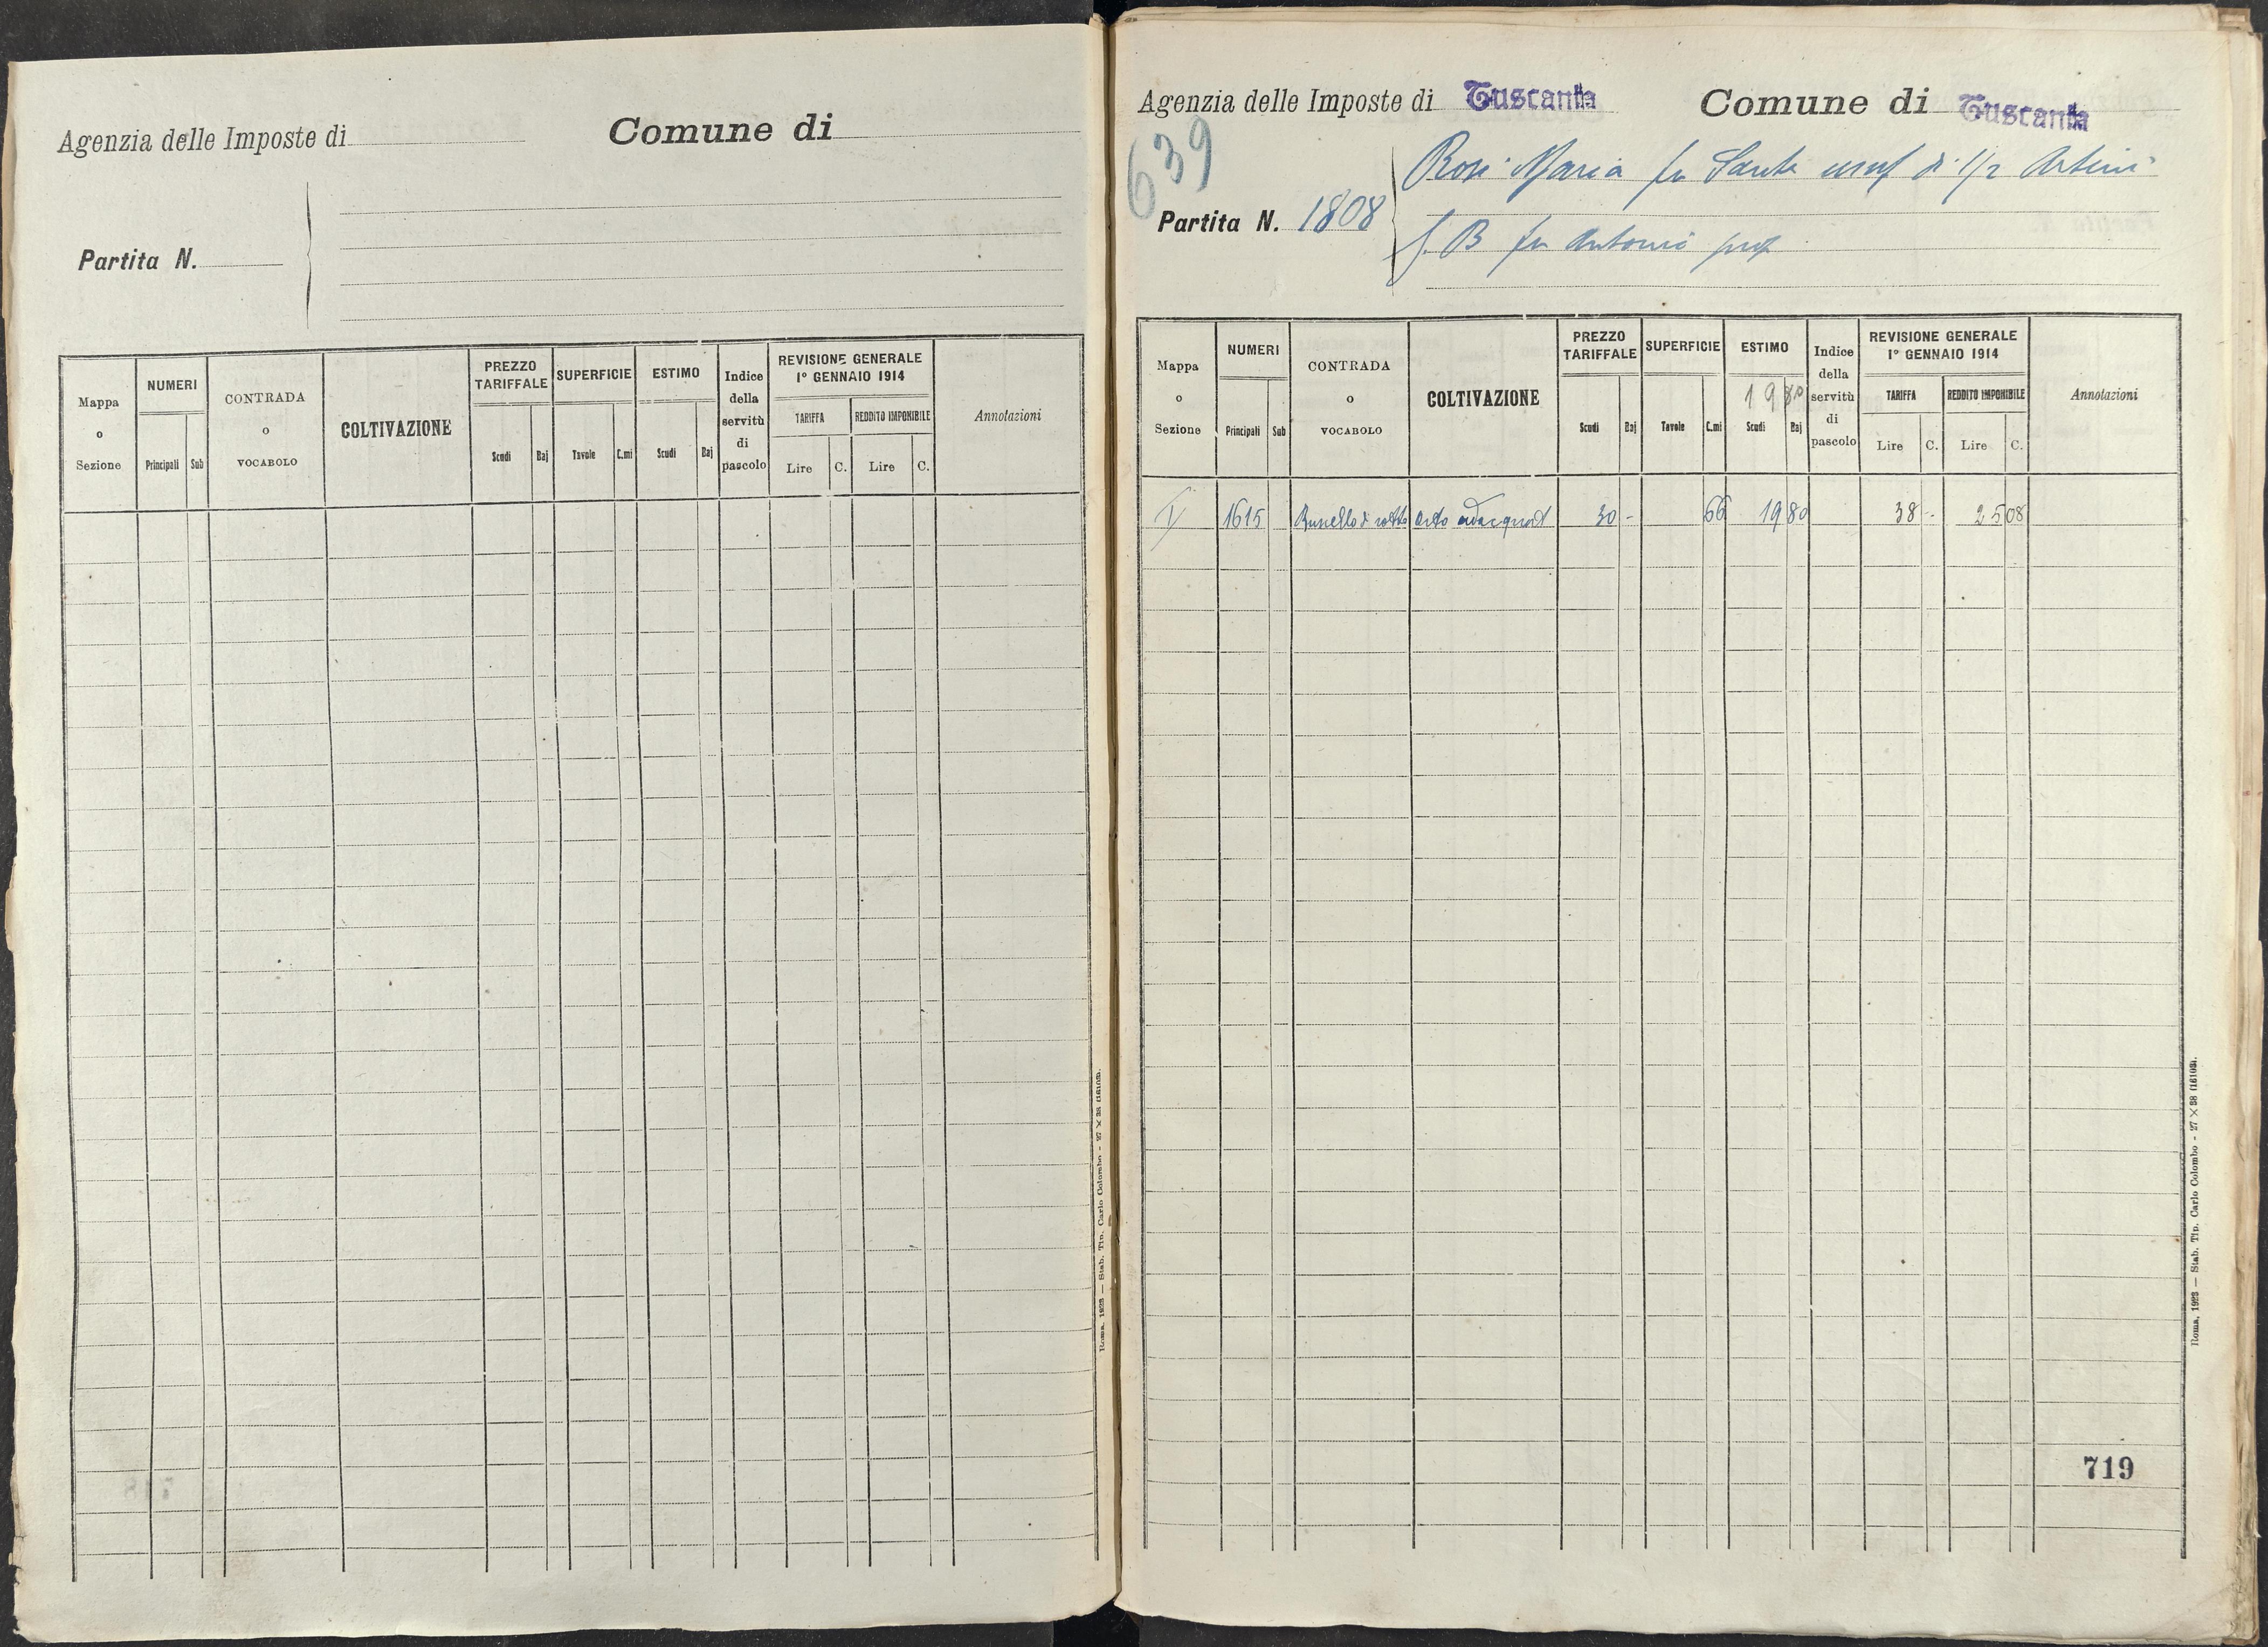 Agenzia delle Imposte di
Comune di
Partita N.
Mappa o Sezione
NUMERI
Principali
Sub
CONTRADA o VOCABOLO
COLTIVAZIONE
PREZZO TARIFFALE
Scudi
Baj
SUPERFICIE
Tavole
C.mi
ESTIMO
Scudi
Baj
Indice della servitù di pascolo
REVISIONE GENERALE
1° GENNAIO 1914
TARIFFA
REDDITO IMPONIBILE
Lire
C.
Lire
C.
Annotazioni
Roma, 1923 — Stab. Tip. Carlo Colombo - 27 × 38 (16103).
Agenzia delle Imposte di Tuscania
Comune di Tuscania
639
Partita N. 1808
Rosi Maria fu Sante usuf di 1/2 Arteni
B fu Antonio prop
Mappa o Sezione
NUMERI
Principali
Sub
CONTRADA o VOCABOLO
COLTIVAZIONE
PREZZO TARIFFALE
Scudi
Baj
SUPERFICIE
Tavole
C.mi
ESTIMO
19 80
Scudi
Baj
Indice della servitù di pascolo
REVISIONE GENERALE
1° GENNAIO 1914
TARIFFA
REDDITO IMPONIBILE
Lire
C.
Lire
C.
Annotazioni
1615 di sotto orto adacquat 30 - 66 19 80 38 - 25 08
719
Roma, 1923 — Stab. Tip. Carlo Colombo - 27 × 38 (16103).